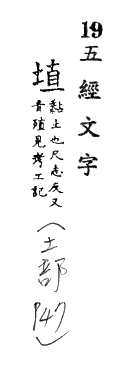 19
五經文字
埴
黏土也尺志反又
音殖見考工記
（土部P47）